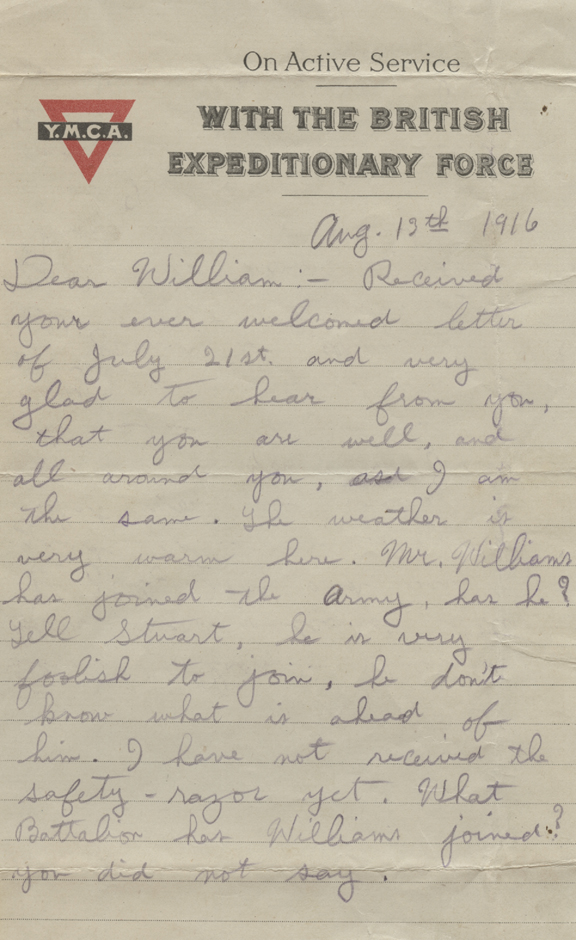 On Active Service
Y.M.C.A.
WITH THE BRITISH
EXPEDITIONARY FORCE
Aug. 13th 1916
Dear William:- Received
your ever welcomed letter
of July 21st. and very
glad to hear from you,
that you are well, and
all around you, and I am
the same. The weather is
very warm here. Mr. Williams
has joined the Army, has he?
Tell Stuart, he is very
foolish to join, he don't
know what is ahead of
him. I have not received the
safety-razor yet. What
Battalion has Williams joined?
you did not say.